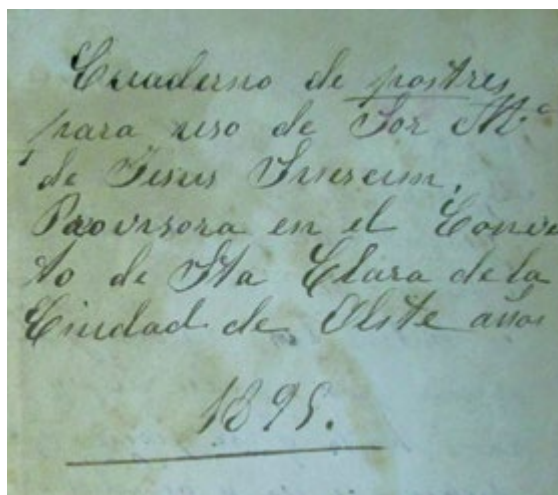 Cuaderno de postres
para uso de Sor M.ª
de Jesus
Provisora en el Conven
to de Sta Clara de la
Ciudad de Olite años
1895.